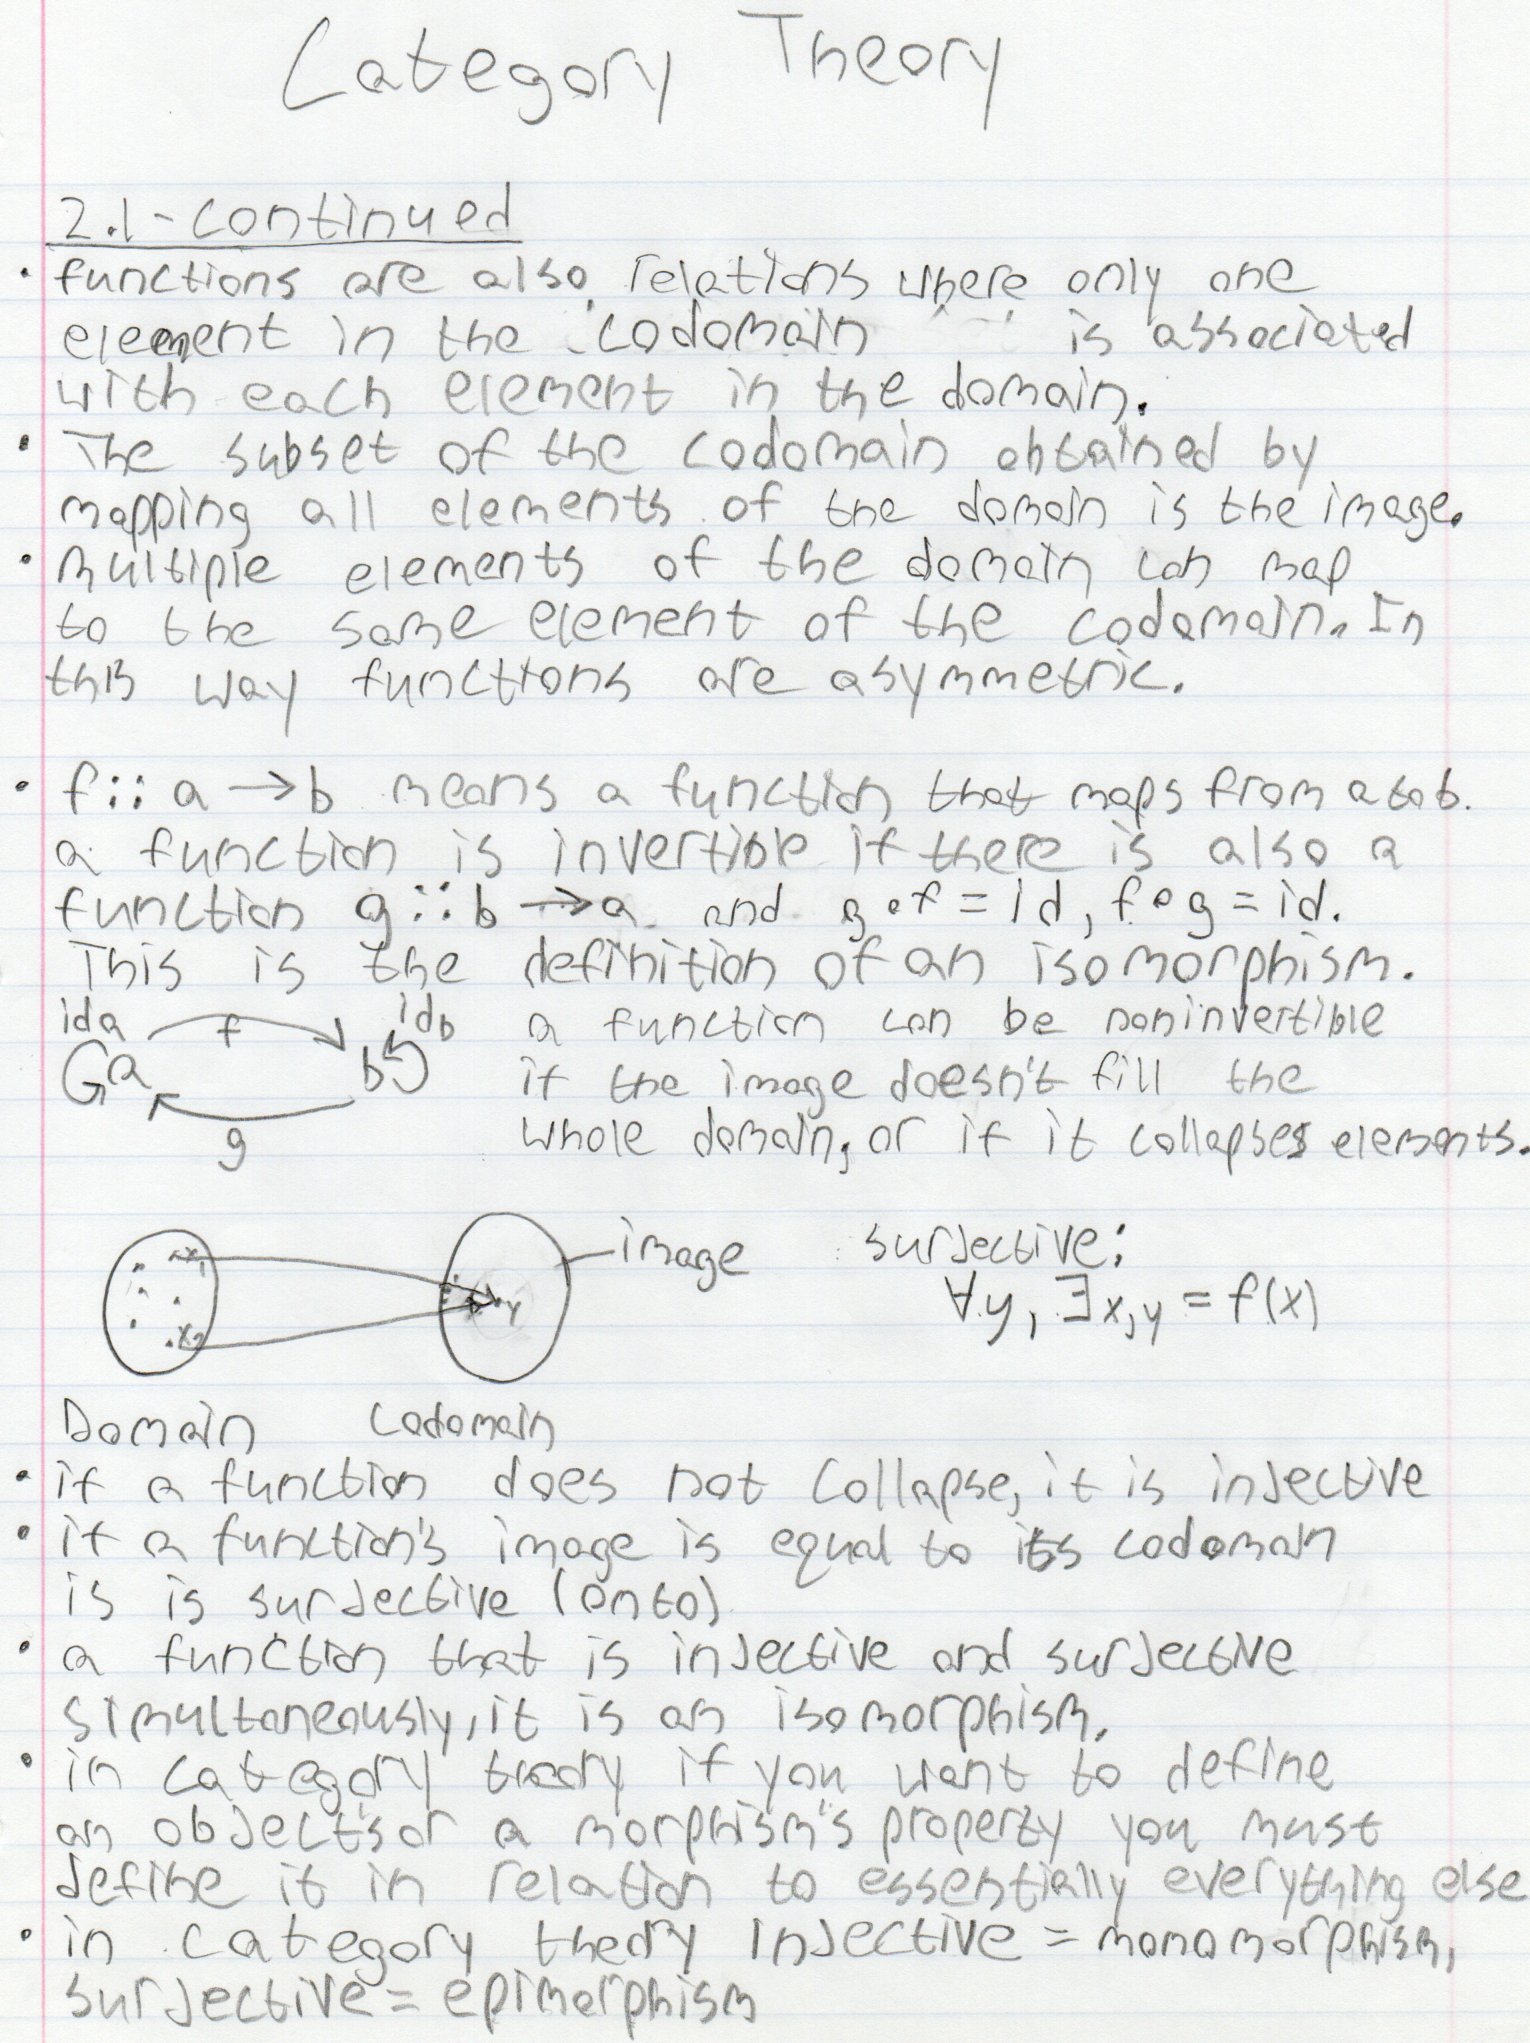 Category Theory
2.1-continued
• functions are also relations where only one
element in the codomain is associated
with each element in the domain.
• The subset of the codomain obtained by
mapping all elements of the domain is the image.
• Multiple elements of the domain can map
to the same element of the codomain. In
this way functions are asymmetric.
• f :: a → b means a function that maps from a to b.
a function is invertible if there is also a
function g :: b → a and g∘f = id, f∘g = id.
This is the definition of an isomorphism.
ida f idb a function can be noninvertible
a b if the image doesn't fill the
g whole domain, or if it collapses elements.
x1 image surjective:
y ∀y, ∃x, y = f(x)
x2
Domain Codomain
• if a function does not collapse, it is injective
• if a function's image is equal to its codomain
is is surjective (onto)
• a function that is injective and surjective
simultaneously, it is an isomorphism.
• in category theory if you want to define
an object's or a morphism's property you must
define it in relation to essentially everything else
• in category theory injective = monomorphism,
surjective = epimorphism